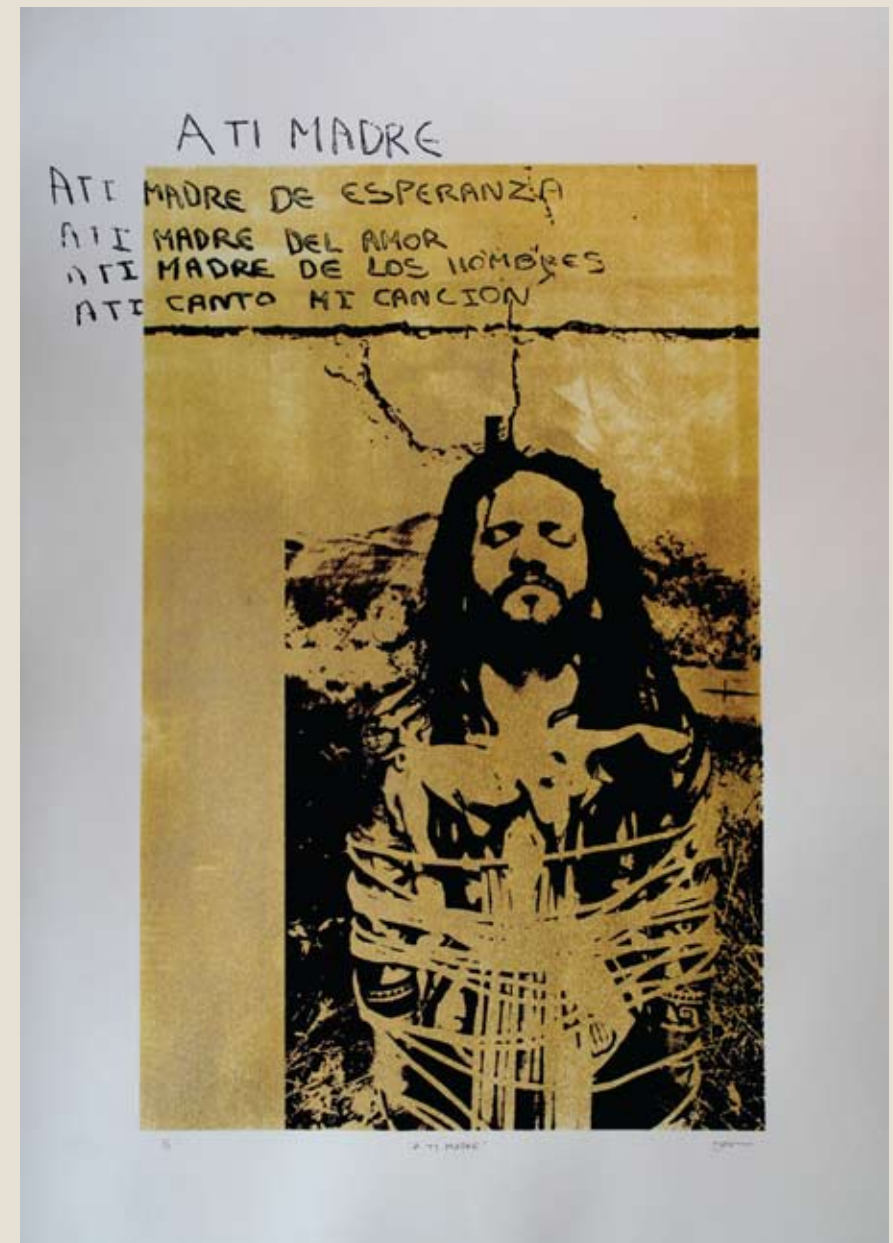 A TI MADRE
ATI MADRE DE ESPERANZA
ATI MADRE DEL AMOR
ATI MADRE DE LOS HOMBRES
ATI CANTO MI CANCION
"A TI MADRE"